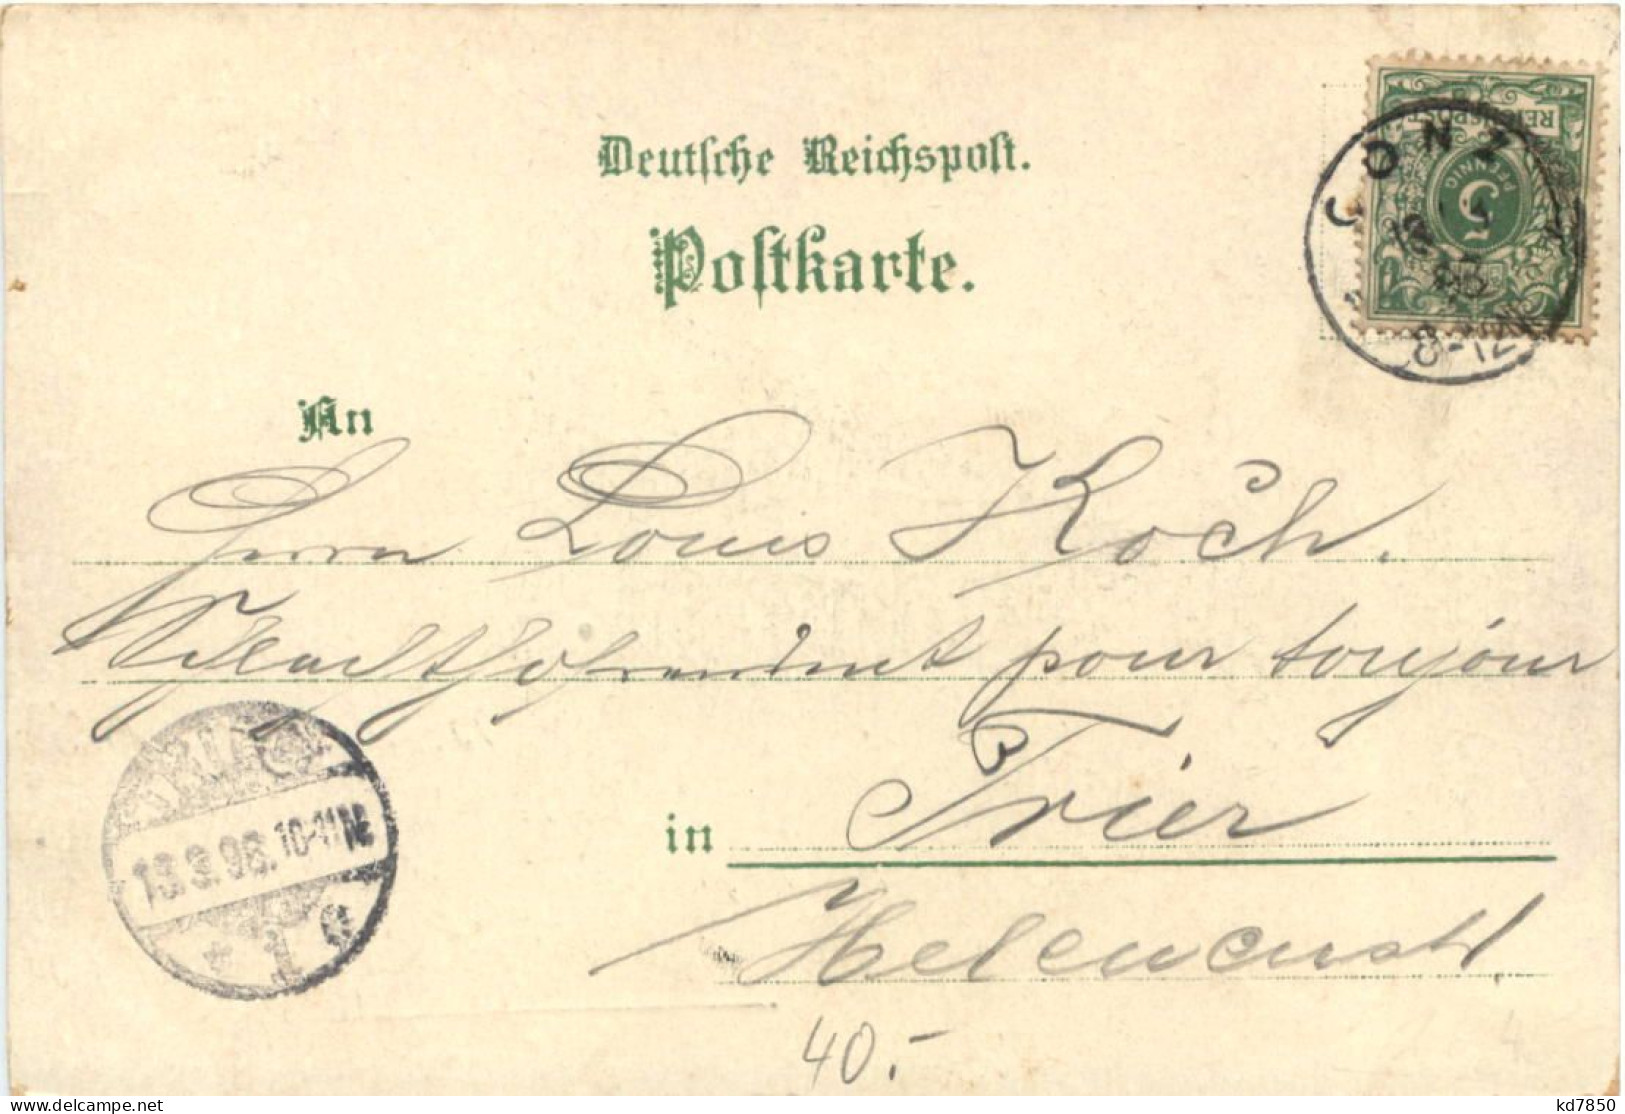 Deutsche Reichspost.
Postkarte.
REICHSPOST
5
PFENNIG
CONZ
8-12N
An
Herrn Louis Koch.
pour toujour
in Trier
Helenenstr.
TRIER
13.3.98.10-11N.
* 1 e
40.-
kd7850